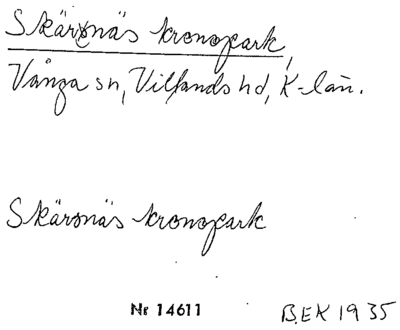 Skärsnäs kronopark,
Vånga sn, Villands hd, K-län.
Skärsnäs kronopark
Nr 14611
B.E.K 1935